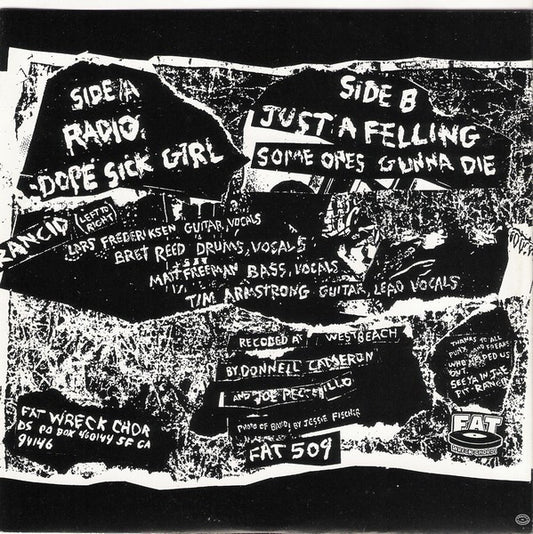 SIDE A
RADIO
DOPE SICK GIRL
SIDE B
JUST A FELLING
SOME ONES GUNNA DIE
RANCID (LEFT TO RIGHT)
LARS FREDERIKSEN GUITAR, VOCALS
BRET REED DRUMS, VOCALS
MATT FREEMAN BASS, VOCALS
TIM ARMSTRONG GUITAR, LEAD VOCALS
RECODED AT WES BEACH
BY DONNELL CAMERON
AND JOE
PHOTO OF BAND BY JESSIE FISCHER
FAT 509
FAT WRECK CHOR
DS PO BOX 460144 SF CA
94146
THANKS TO ALL
PUNX AND
WHO HELPED US
OUT
SEE YA IN THE
PIT RANCID
FAT
WRECK CHORDS